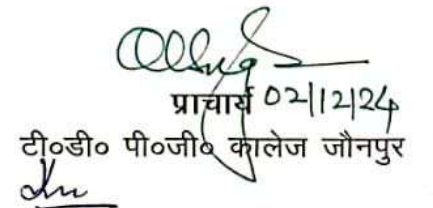 प्राचार्य 02/12/24
टी०डी० पी०जी० कालेज जौनपुर